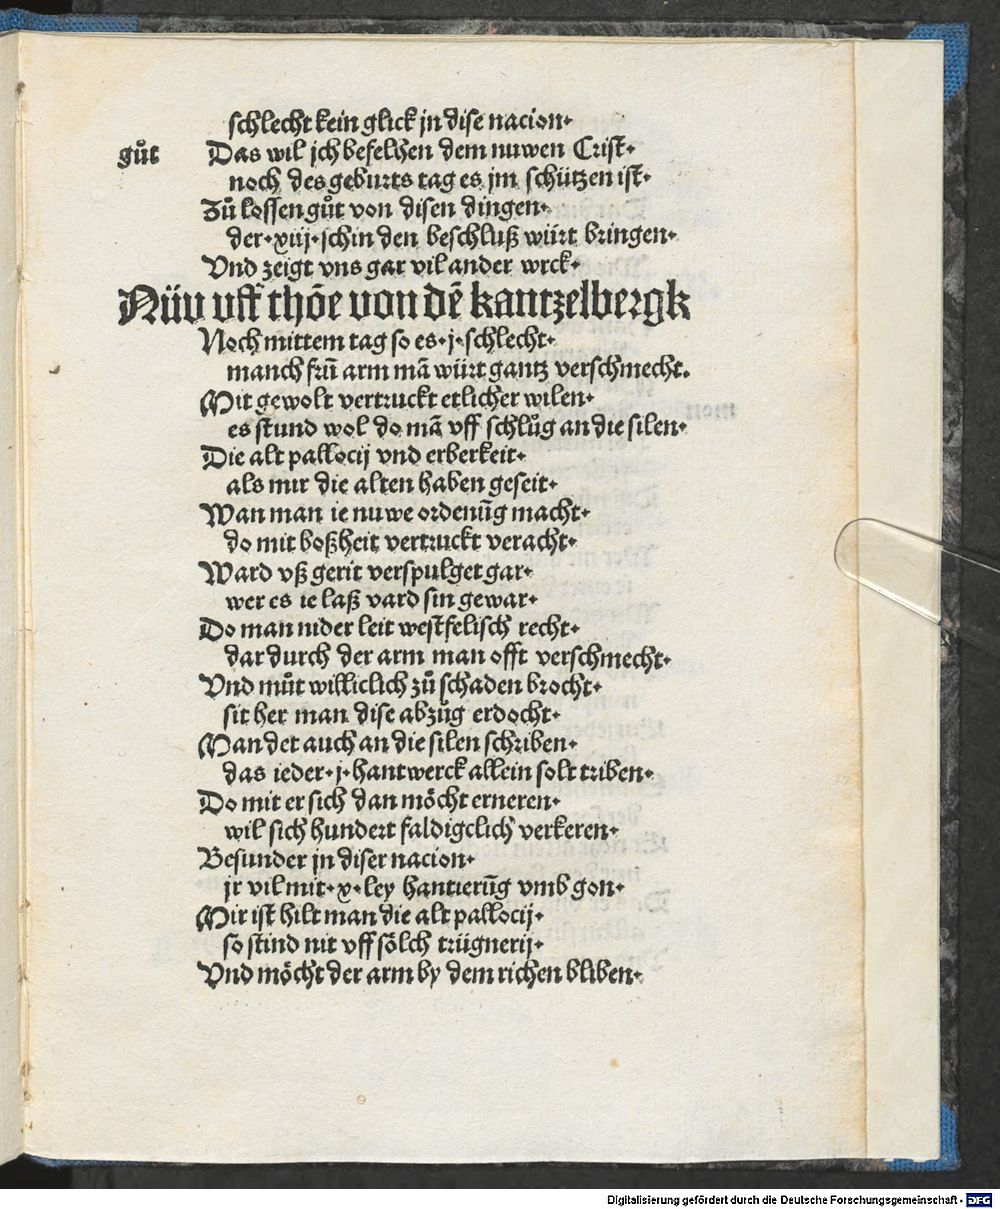 schlecht kein glick jn dise nacion·
gůt Das wil jch befelhen dem nuwen Crist·
noch des geburts tag es jm schützen ist·
Zů lossen gůt von disen dingen·
der·xiij·schin den beschluß würt bringen·
Vnd zeigt vns gar vil ander wrck·
Nüv vff thōe von dē kantzelbergk
Noch mittem tag so es·j·schlecht·
manch frū arm mā würt gantz verschmecht.
Mit gewolt vertruckt etlicher wilen·
es stund wol do mā vff schlůg an die silen·
Die alt pallocij vnd erberkeit·
als mir die alten haben geseit·
Wan man ie nuwe ordenūg macht·
do mit boßheit vertruckt veracht·
Ward vß gerit verspulget gar·
wer es ie laß vard sin gewar·
Do man nider leit westfelisch recht·
dar durch der arm man offt verschmecht·
Vnd můt williclich zů schaden brocht·
sit her man dise abzüg erdocht·
Man det auch an die silen schriben·
das ieder·j·hantwerck allein solt triben·
Do mit er sich dan möcht erneren·
wil sich hundert faldigclich verkeren·
Besunder jn diser nacion·
jr vil mit·x·ley hantierūg vmb gon·
Mir ist hilt man die alt pallocij·
so stind nit vff sölch trügnerij·
Vnd möcht der arm by dem richen bliben·
Digitalisierung gefördert durch die Deutsche Forschungsgemeinschaft - DFG